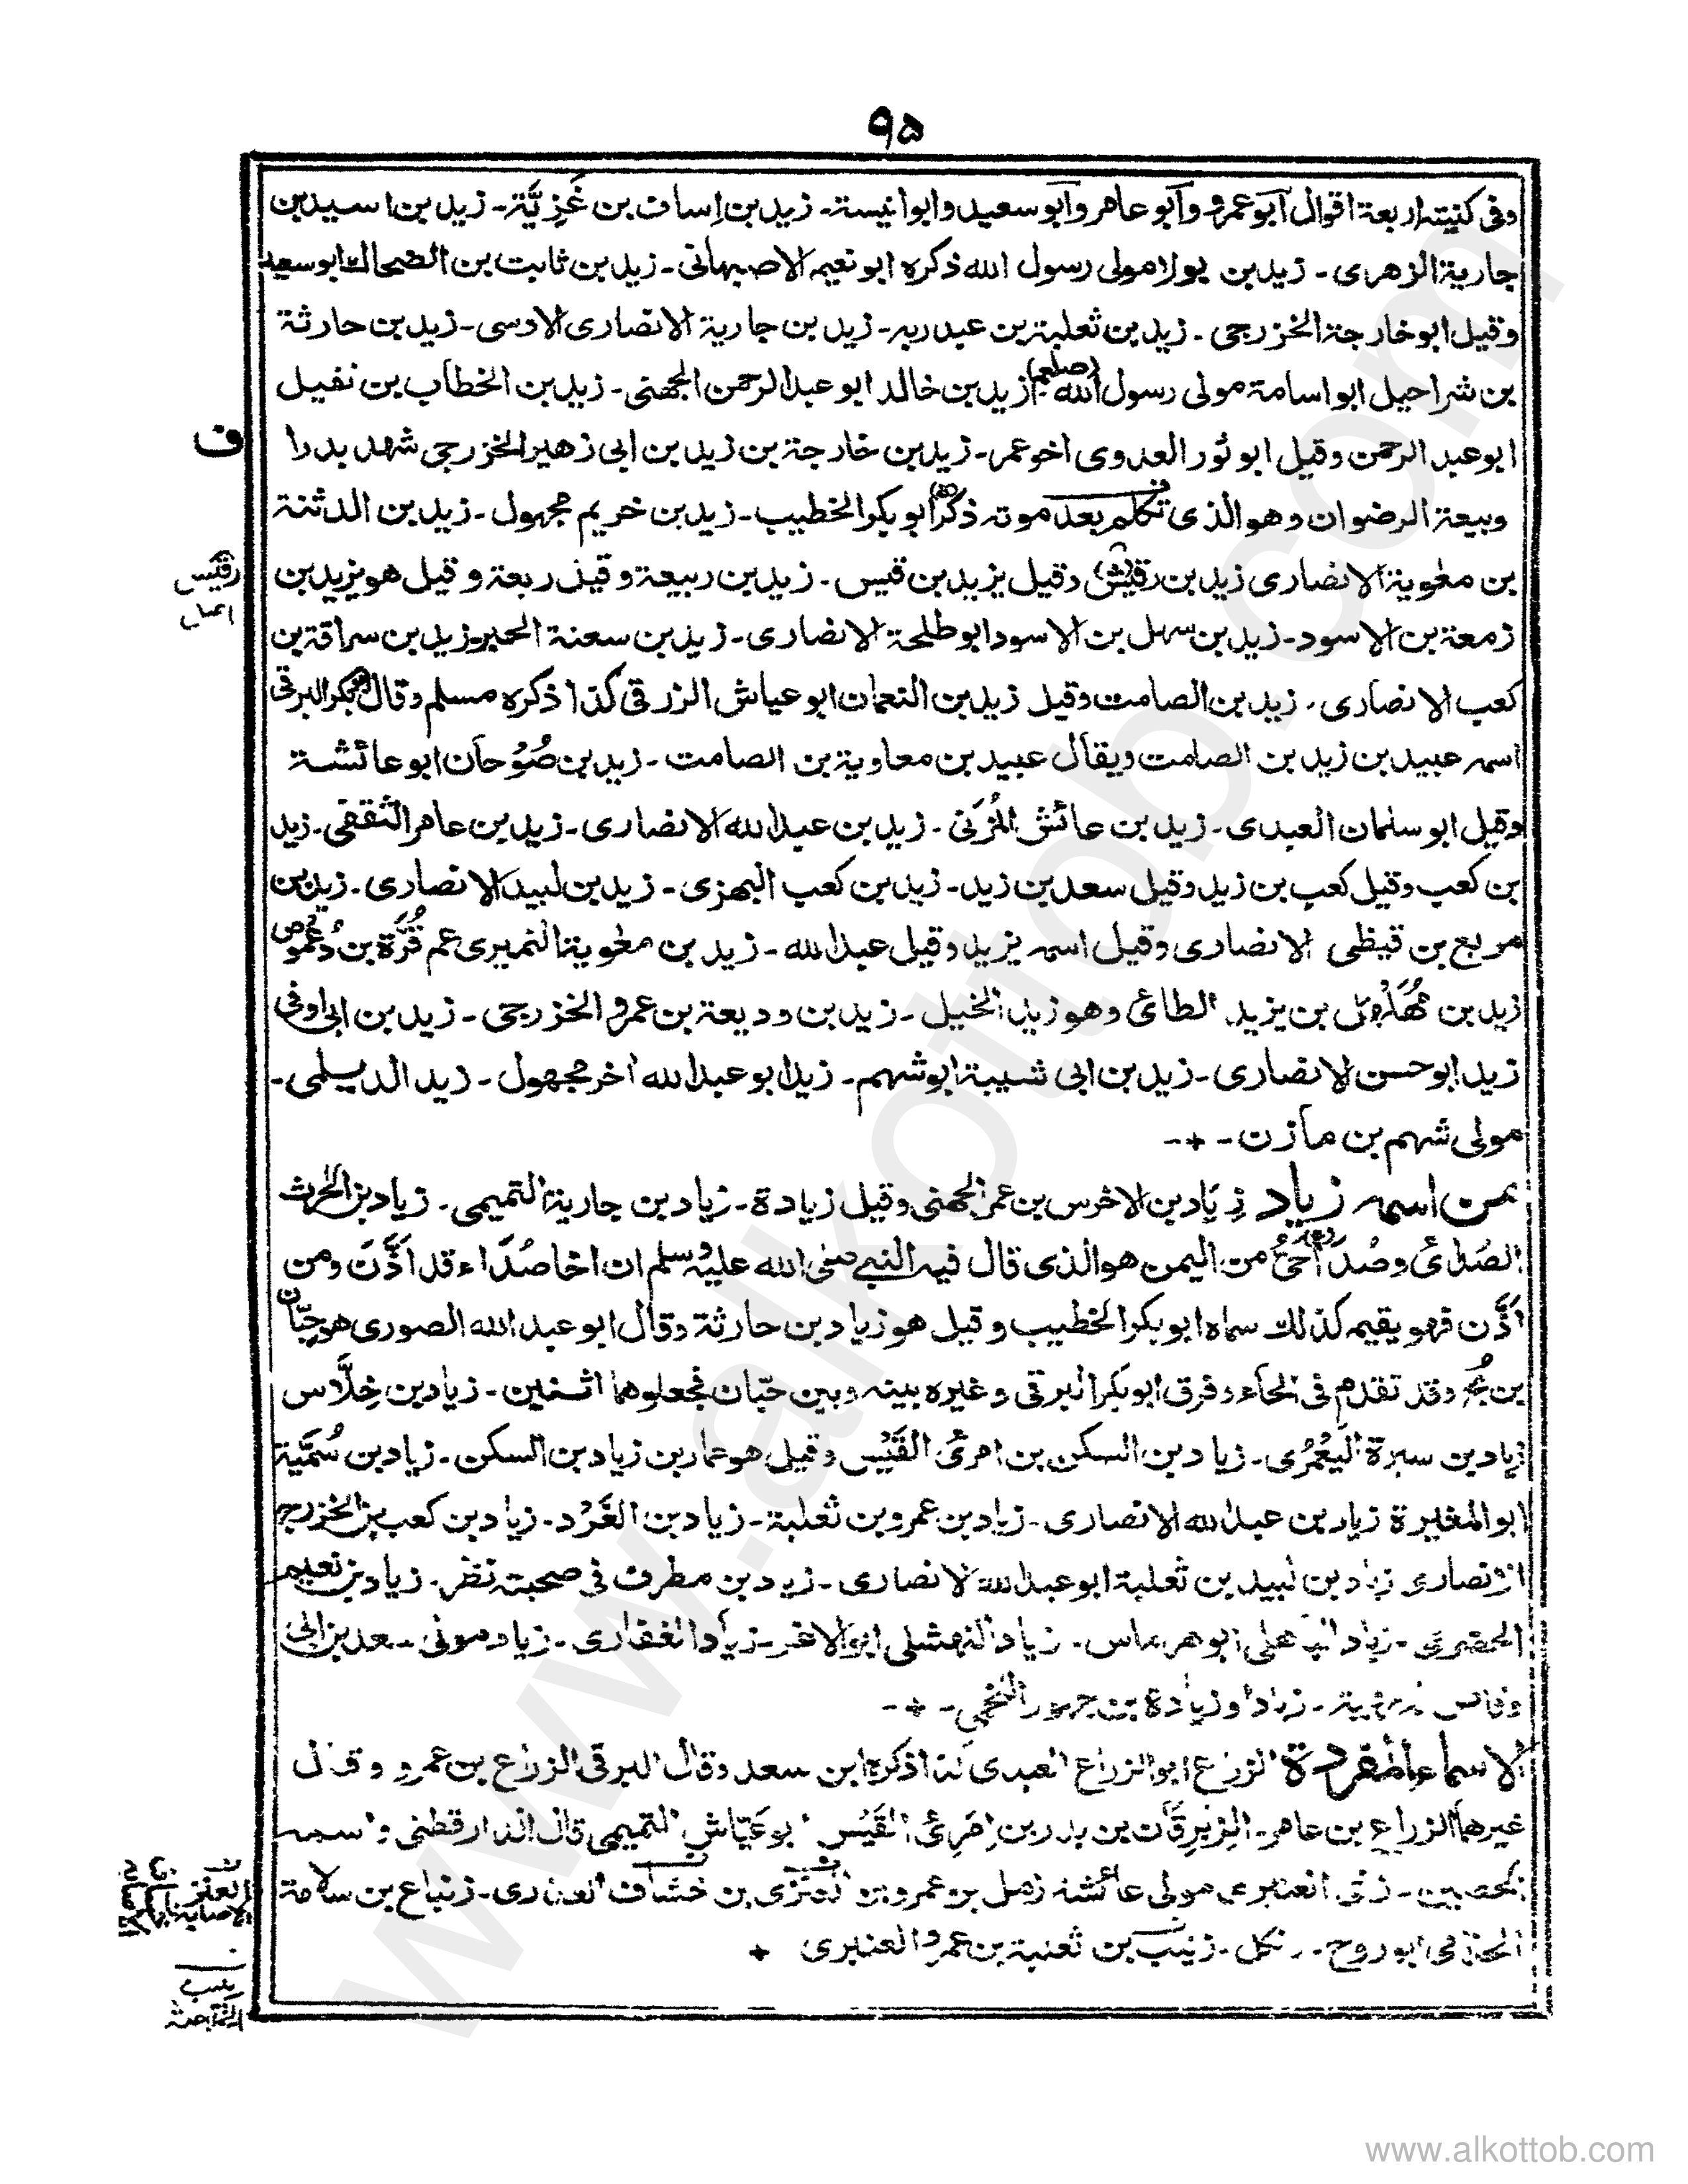 ٩٥
وفى كنيته اربعة اقوال ابو عمرو وابو عامر وابو سعيد وابو انيسة ـ زيد بن اساف بن غَزِيَّة ـ زيد بن اسيد بن
جارية الزهرى ـ زيد بن بولا مولى رسول الله ذكره ابو نعيم الاصبهانى ـ زيد بن ثابت بن الضحاك ابو سعيد
وقيل ابو خارجة الخزرجى ـ زيد بن ثعلبة بن عبد ربه ـ زيد بن جارية الانصارى الاوسى ـ زيد بن حارثة
بن شراحيل ابو اسامة مولى رسول الله (صلعم) ـ زيد بن خالد ابو عبد الرحمن الجهنى ـ زيد بن الخطاب بن نفيل
ابو عبد الرحمن وقيل ابو ثور العدوى اخو عمر ـ زيد بن خارجة بن زيد بن ابى زهير الخزرجى شهد بدرا
ف
وبيعة الرضوان وهو الذى تكلم بعد موته ذكره ابو بكر الخطيب ـ زيد بن خريم مجهول ـ زيد بن الدثنة
بن معوية الانصارى زيد بن رقيش وقيل يزيد بن قيس ـ زيد بن ربيعة وقيل ربعة وقيل هو يزيد بن
رقيس
زمعة بن الاسود ـ زيد بن سهل بن الاسود ابو طلحة الانصارى ـ زيد بن سعنة الحبر ـ زيد بن سراقة بن
كعب الانصارى ـ زيد بن الصامت وقيل زيد بن النعمان ابو عياش الزرقى كذا ذكره مسلم وقال ابو بكر البرقى
اسمه عبيد بن زيد بن الصامت ويقال عبيد بن معاوية بن الصامت ـ زيد بن صُوْحان ابو عائشة
وقيل ابو سلمان العبدى ـ زيد بن عائش المُزَنى ـ زيد بن عبد الله الانصارى ـ زيد بن عامر الثقفى ـ زيد
بن كعب وقيل كعب بن زيد وقيل سعد بن زيد ـ زيد بن كعب البهزى ـ زيد بن لبيد الانصارى ـ زيد بن
مربع بن قيظى الانصارى وقيل اسمه يزيد وقيل عبد الله ـ زيد بن معوية النميرى عم قُرَّة بن دُعموص
زيد بن مُهَلْهِل بن يزيد الطائى وهو زيد الخيل ـ زيد بن وديعة بن عمرو الخزرجى ـ زيد بن ابى اوفى
زيد ابو حسن الانصارى ـ زيد بن ابى شيبة ابو شهم ـ زيد ابو عبد الله اخر مجهول ـ زيد الديلمى ـ
مولى شهم بن مازن ـ + ـ
من اسمه زياد زياد بن الاخرس بن عمر الجهنى وقيل زيادة ـ زياد بن جارية التميمى ـ زياد بن الحرث
الصُدائى وصُداء حىّ من اليمن هو الذى قال فيه النبى صلى الله عليه وسلم ان اخا صُداء قد اَذَّنَ ومن
اَذَّن فهو يقيم كذلك سماه ابو بكر الخطيب وقيل هو زياد بن حارثة وقال ابو عبد الله الصورى هو حِبّان
بن بُحّ وقد تقدم فى الحاء وفرق ابو بكر البرقى وغيره بينه وبين حبّان فجعلوهما اثنين ـ زياد بن خِلَّاس
زياد بن سبرة اليَعْمُرى ـ زياد بن السكن بن امرئ القَيْس وقيل هو عمار بن زياد بن السكن ـ زياد بن سُمَيَّة
ابو المغيرة زياد بن عبد الله الانصارى ـ زياد بن عمرو بن ثعلبة ـ زياد بن الغَرْد ـ زياد بن كعب بن الخزرج
الانصارى زياد بن لبيد بن ثعلبة ابو عبد الله الانصارى ـ زياد بن مطرف فى صحبته نظر ـ زياد بن نعيم
الحضرمى ـ زياد الباهلى ابو هرماس ـ زياد النهشلى ابو الاغر ـ زياد الغفارى ـ زياد مولى سعد بن ابى
وقاص ـ زياد او زيادة بن جهور اللخمى ـ + ـ
الاسماء المفردة الزارع ابو الزراع العبدى كذا ذكره ابن سعد وقال البرقى الزراع بن عمرو وقال
غيرهما الزراع بن عامر ـ الزِبْرِقَان بن بدر بن اِمْرِئ القَيْس ابو عَيّاش التميمى قال الدارقطنى واسمه
الحصين ـ زنى العنبرى مولى عائشة زمل بن عمرو بن العنزى بن خشاف العذارى ـ زنباع بن سلامة
الجذامى ابو روح ـ زنكل ـ زنيب بن ثعلبة بن عمرو العنبرى +
www.alkottob.com
www.alkottob.com